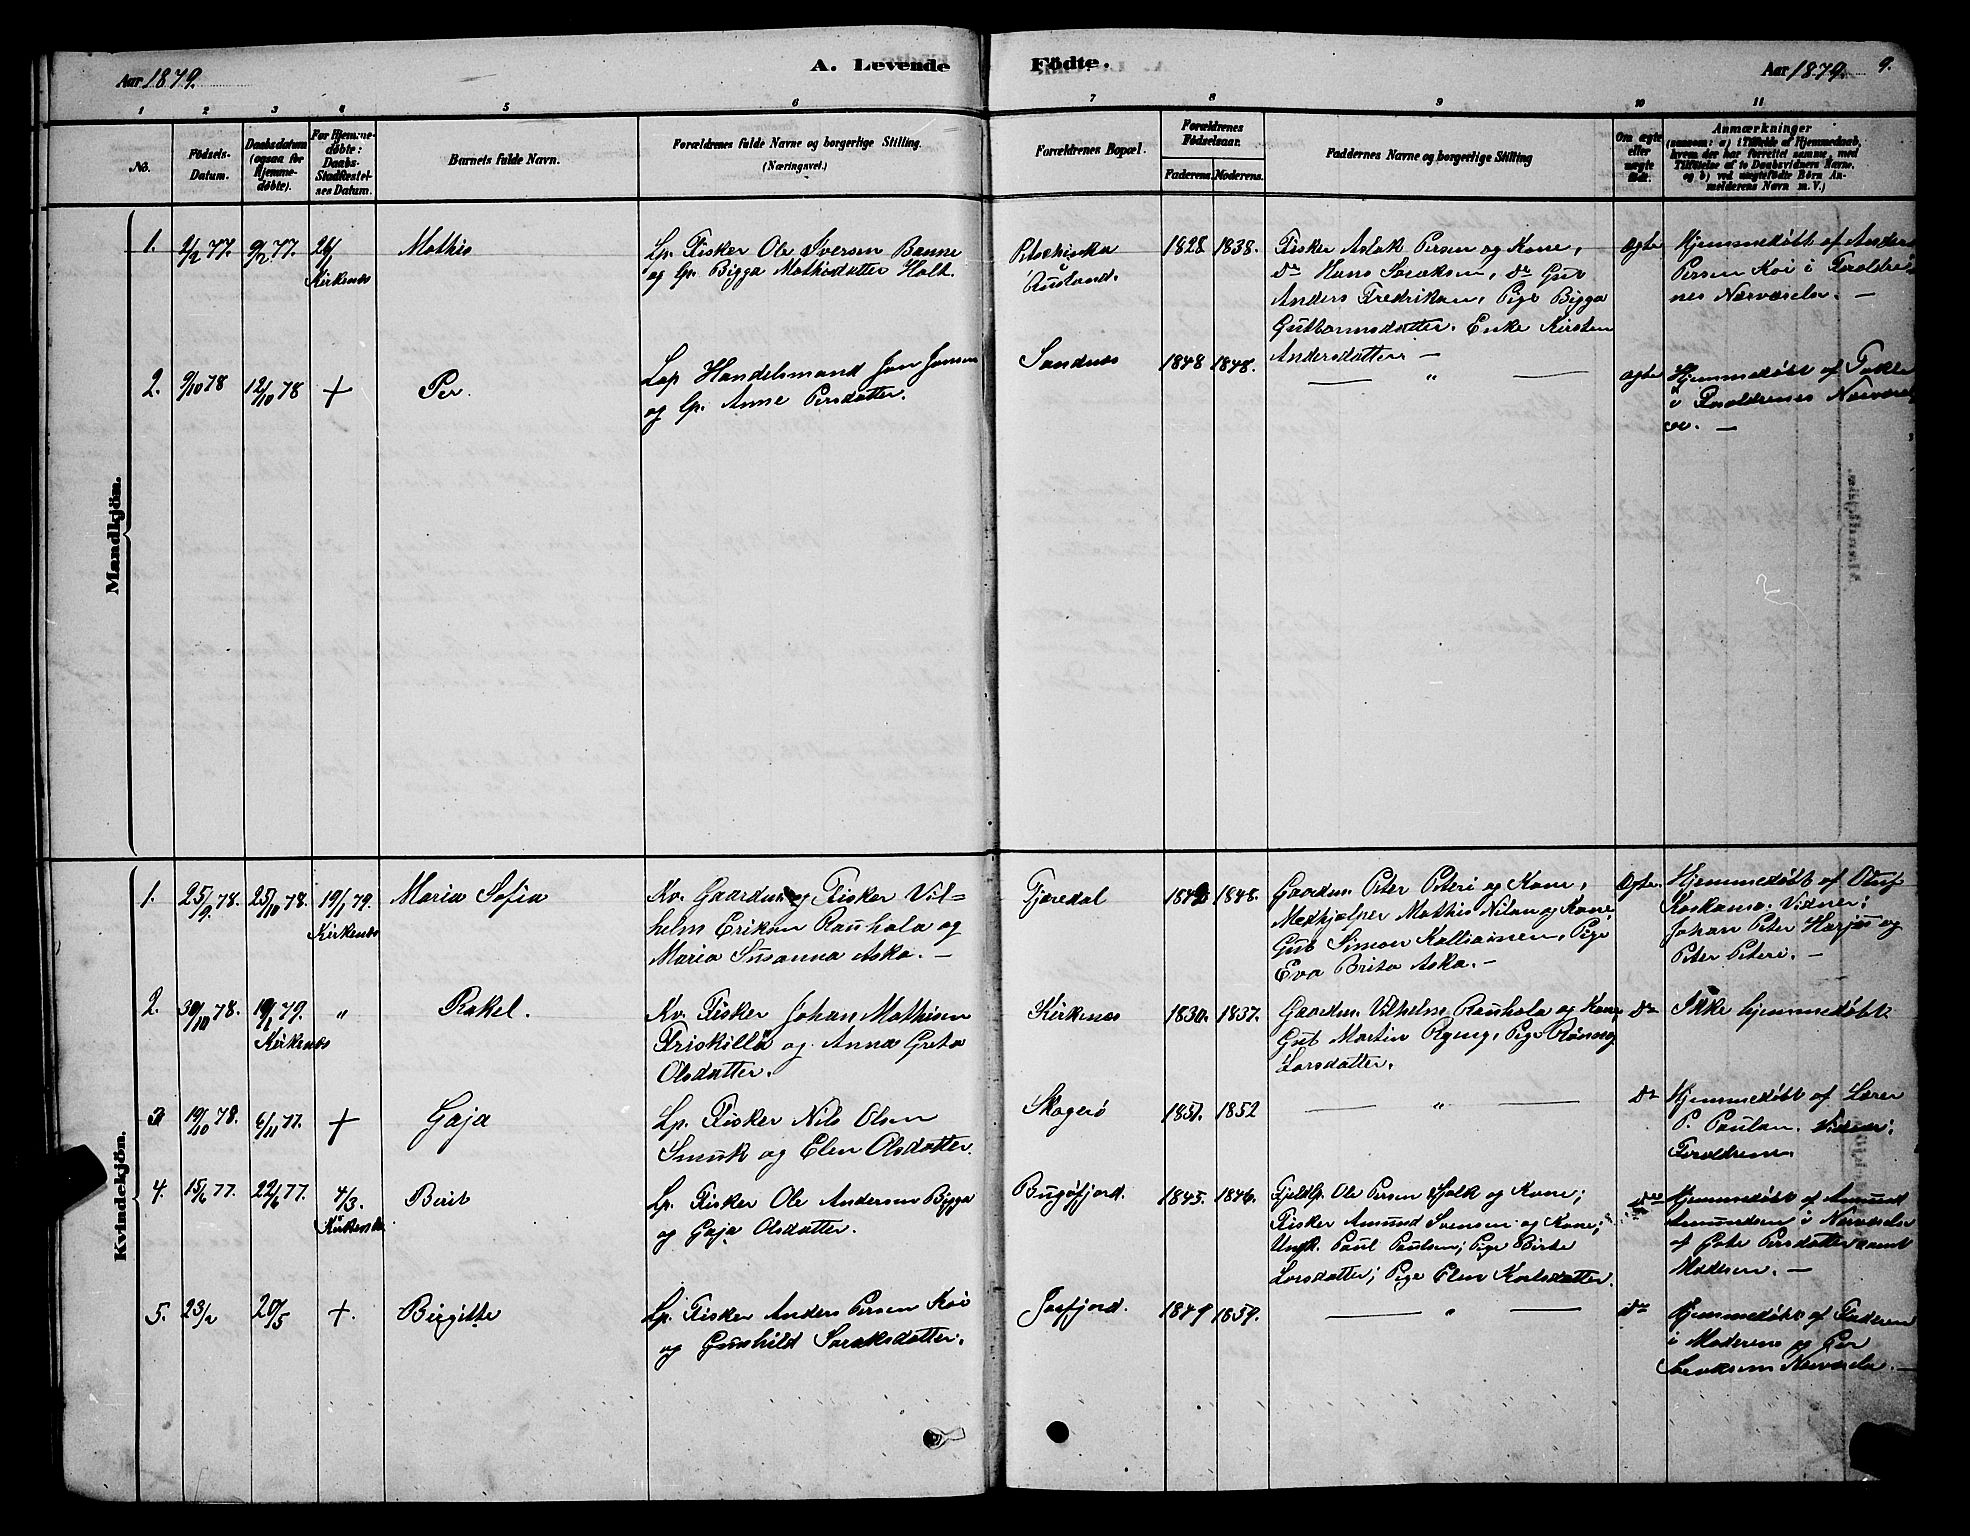 Aar 1879.
A. Levende
Födte.
Aar 1879.
9.
1 2 3 4 5 6 7 8 9 10 11
No.
Födsels-
Datum.
Daabsdatum
(ogsaa for
Hjemme-
døbte).
For Hjemme-
døbte:
Daabs-
Stadfæstel-
ses Datum.
Barnets fulde Navn.
Forældrenes fulde Navne og borgerlige Stilling.
(Næringsvei.)
Forældrenes Bopæl.
Forældrenes
Födselsaar.
Faderens. Moderens.
Faddernes Navne og borgerlige Stilling
Om ægte
eller
uægte
født.
Anmærkninger
(saasom: a) i Tilfælde af Hjemmedaab,
hvem der har forrettet samme, med
Tilføielse af to Daabsvidners Navne,
og b) ved uægtefødte Börn An-
melderens Navn m. V.)
Mandkjön.
1. 2/2 77. 9/2 77. 26/1
Kirkenes
Mathis
Lp. Fisker Ole Iversen Banne
og Lp. Bigga Mathisdatter Halt.
Petschinka
Rusland.
1828 1838.
Fisker Aslak Persen og Kone,
do Hans Saraksen, do Gut
Anders Fredriksen, Pige Bigga
Guttormsdatter. Enke Kirsten
Andersdatter —
ægte
Hjemmedøbt af Anders
Persen Koi i Foreldre-
nes Nærværelse. —
2. 9/10 78 12/10 78 +
Per.
Lap Handelsmand Jon Jonsen
og Lp. Anne Persdatter.
Sandnes
1848 1848.
— " —
ægte
Hjemmedøbt af
i Forældrenes Nærværel-
se. —
Kvindekjön.
1. 25/9 78. 25/10 78. 19/1 79.
Kirkenes
Maria Sofia
Kv. Gaardm og Fisker Vil-
helm Eriksen Rauhala og
Maria Susanna Aska. —
Fjæredal
1848.
Gaardm. Peter Peteri og Kone,
Medhjælper Mathis Nilsen og Kone
Gut Simon Kalliainen, Pige
Eva Brita Aska. —
Ægte.
Hjemmedøbt af Oluf
Koskamo. Vidner:
Johan Peter Harju og
Peter Peteri. —
2. 30/10 78. 19/1 79. "
Kirkenes
Rakel.
Kv. Fisker Johan Mathisen
Friskilä og Anna Greta
Olsdatter.
Kirkenes
1830. 1837.
Gaardm. Vilhelm Rauhala og Kone
Gut Martin Pige
Larsdatter.
do
Ikke hjemmedøbt
3 19/10 78. 6/11 77. +
Gaja
Lp. Fisker Nils Olsen
Smuk og Elen Olsdatter.
Skogerö
1851. 1852
— " —
do
Hjemmedøbt af Lærer
P. Paulsen. Vidner:
Foreldrene
4. 15/6 77. 22/6 77. 4/3.
Kirkenes
Berit
Lp. Fisker Ole Andersen Bigga
og Gaja Olsdatter.
Bugöfjord.
1845. 1846.
Fjeldlp. Ole Persen Halk og Kone;
Fisker Amund Svensen og Kone;
Ungk. Paul Paulsen; Pige Birte
Larsdatter; Pige Elen Karlsdatter.
do
Hjemmedøbt af Amund
Amundsen i Nærværelse
af Persdatter samt
Moderen. —
5. 23/2 20/5 +.
Birgitte
Lp. Fisker Anders Persen Koi
og Gunhild Saraksdatter.
Jarfjord.
1849 1859.
— " —
do
Hjemmedøbt af Faderen
i Moderens og Per
Saraksens Nærværelse. —